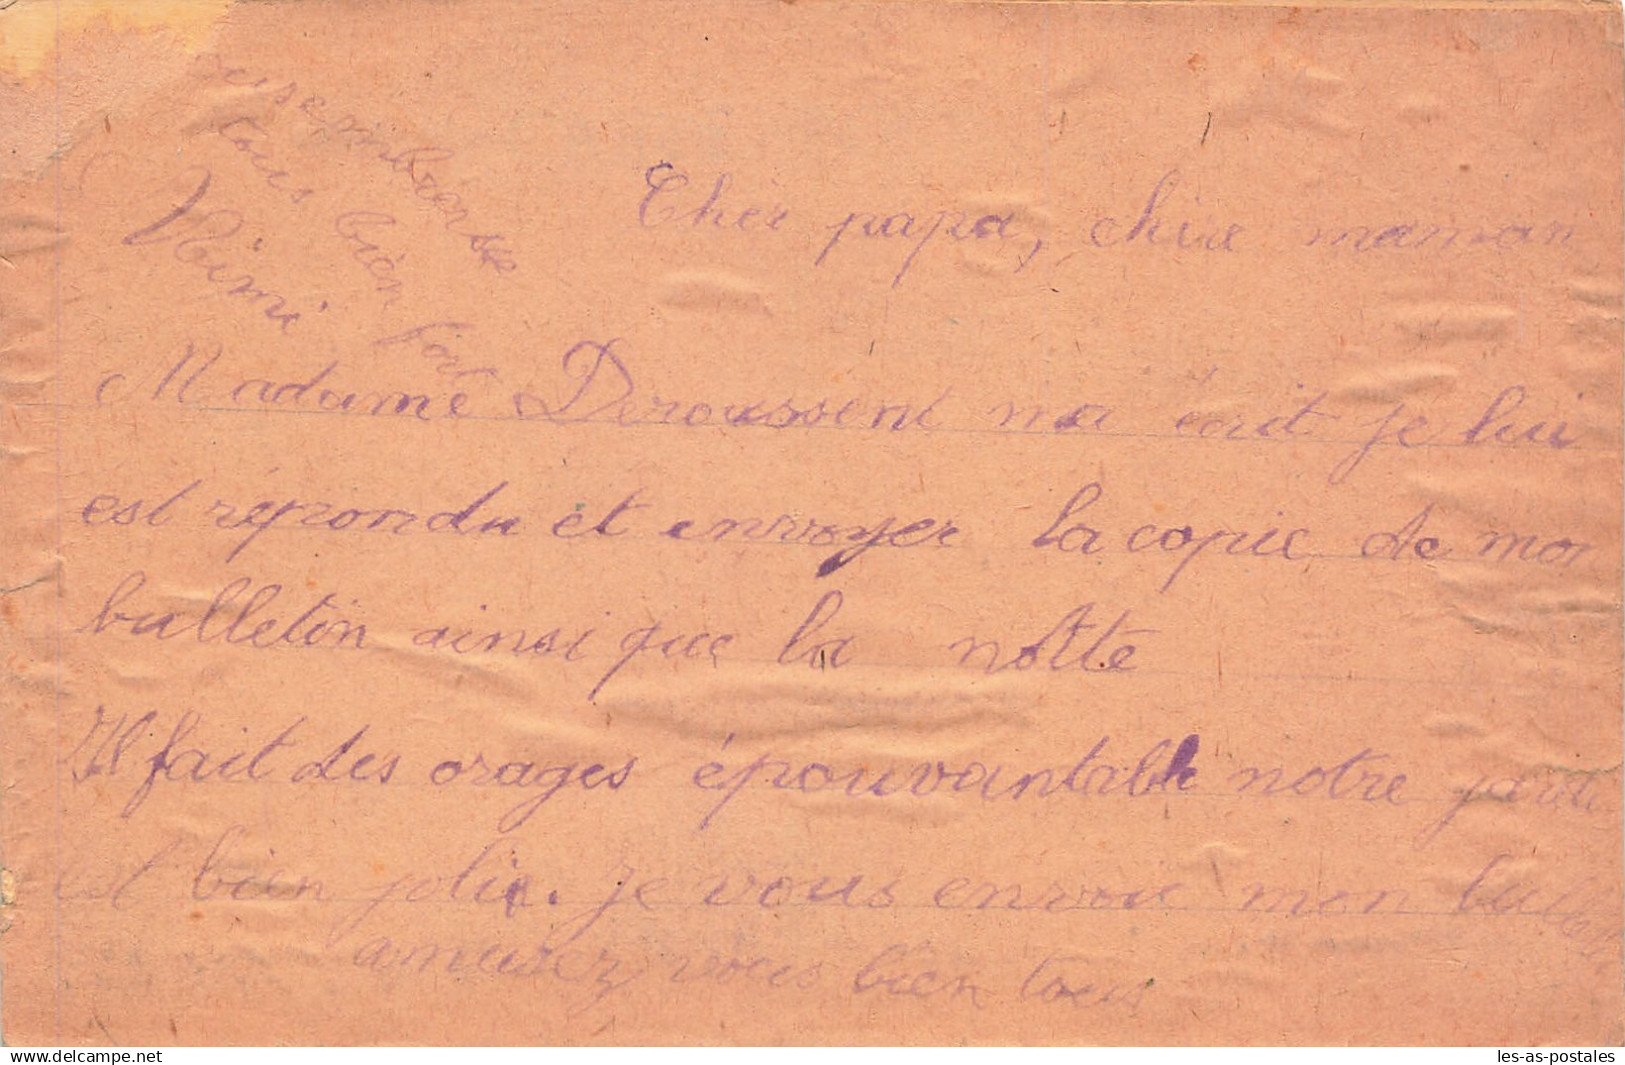 Cher papa, chère maman
Madame Deroussent ma écrit je lui
est répondu et envoyer la copie de mon
bulletin ainsi que la notte
Il fait des orages épouvantable notre
est bien jolie. je vous envoie mon bulletin
amusez vous bien tous
embrasse
tous bien fort
Mimi
Delcampe.net
les-as-postales